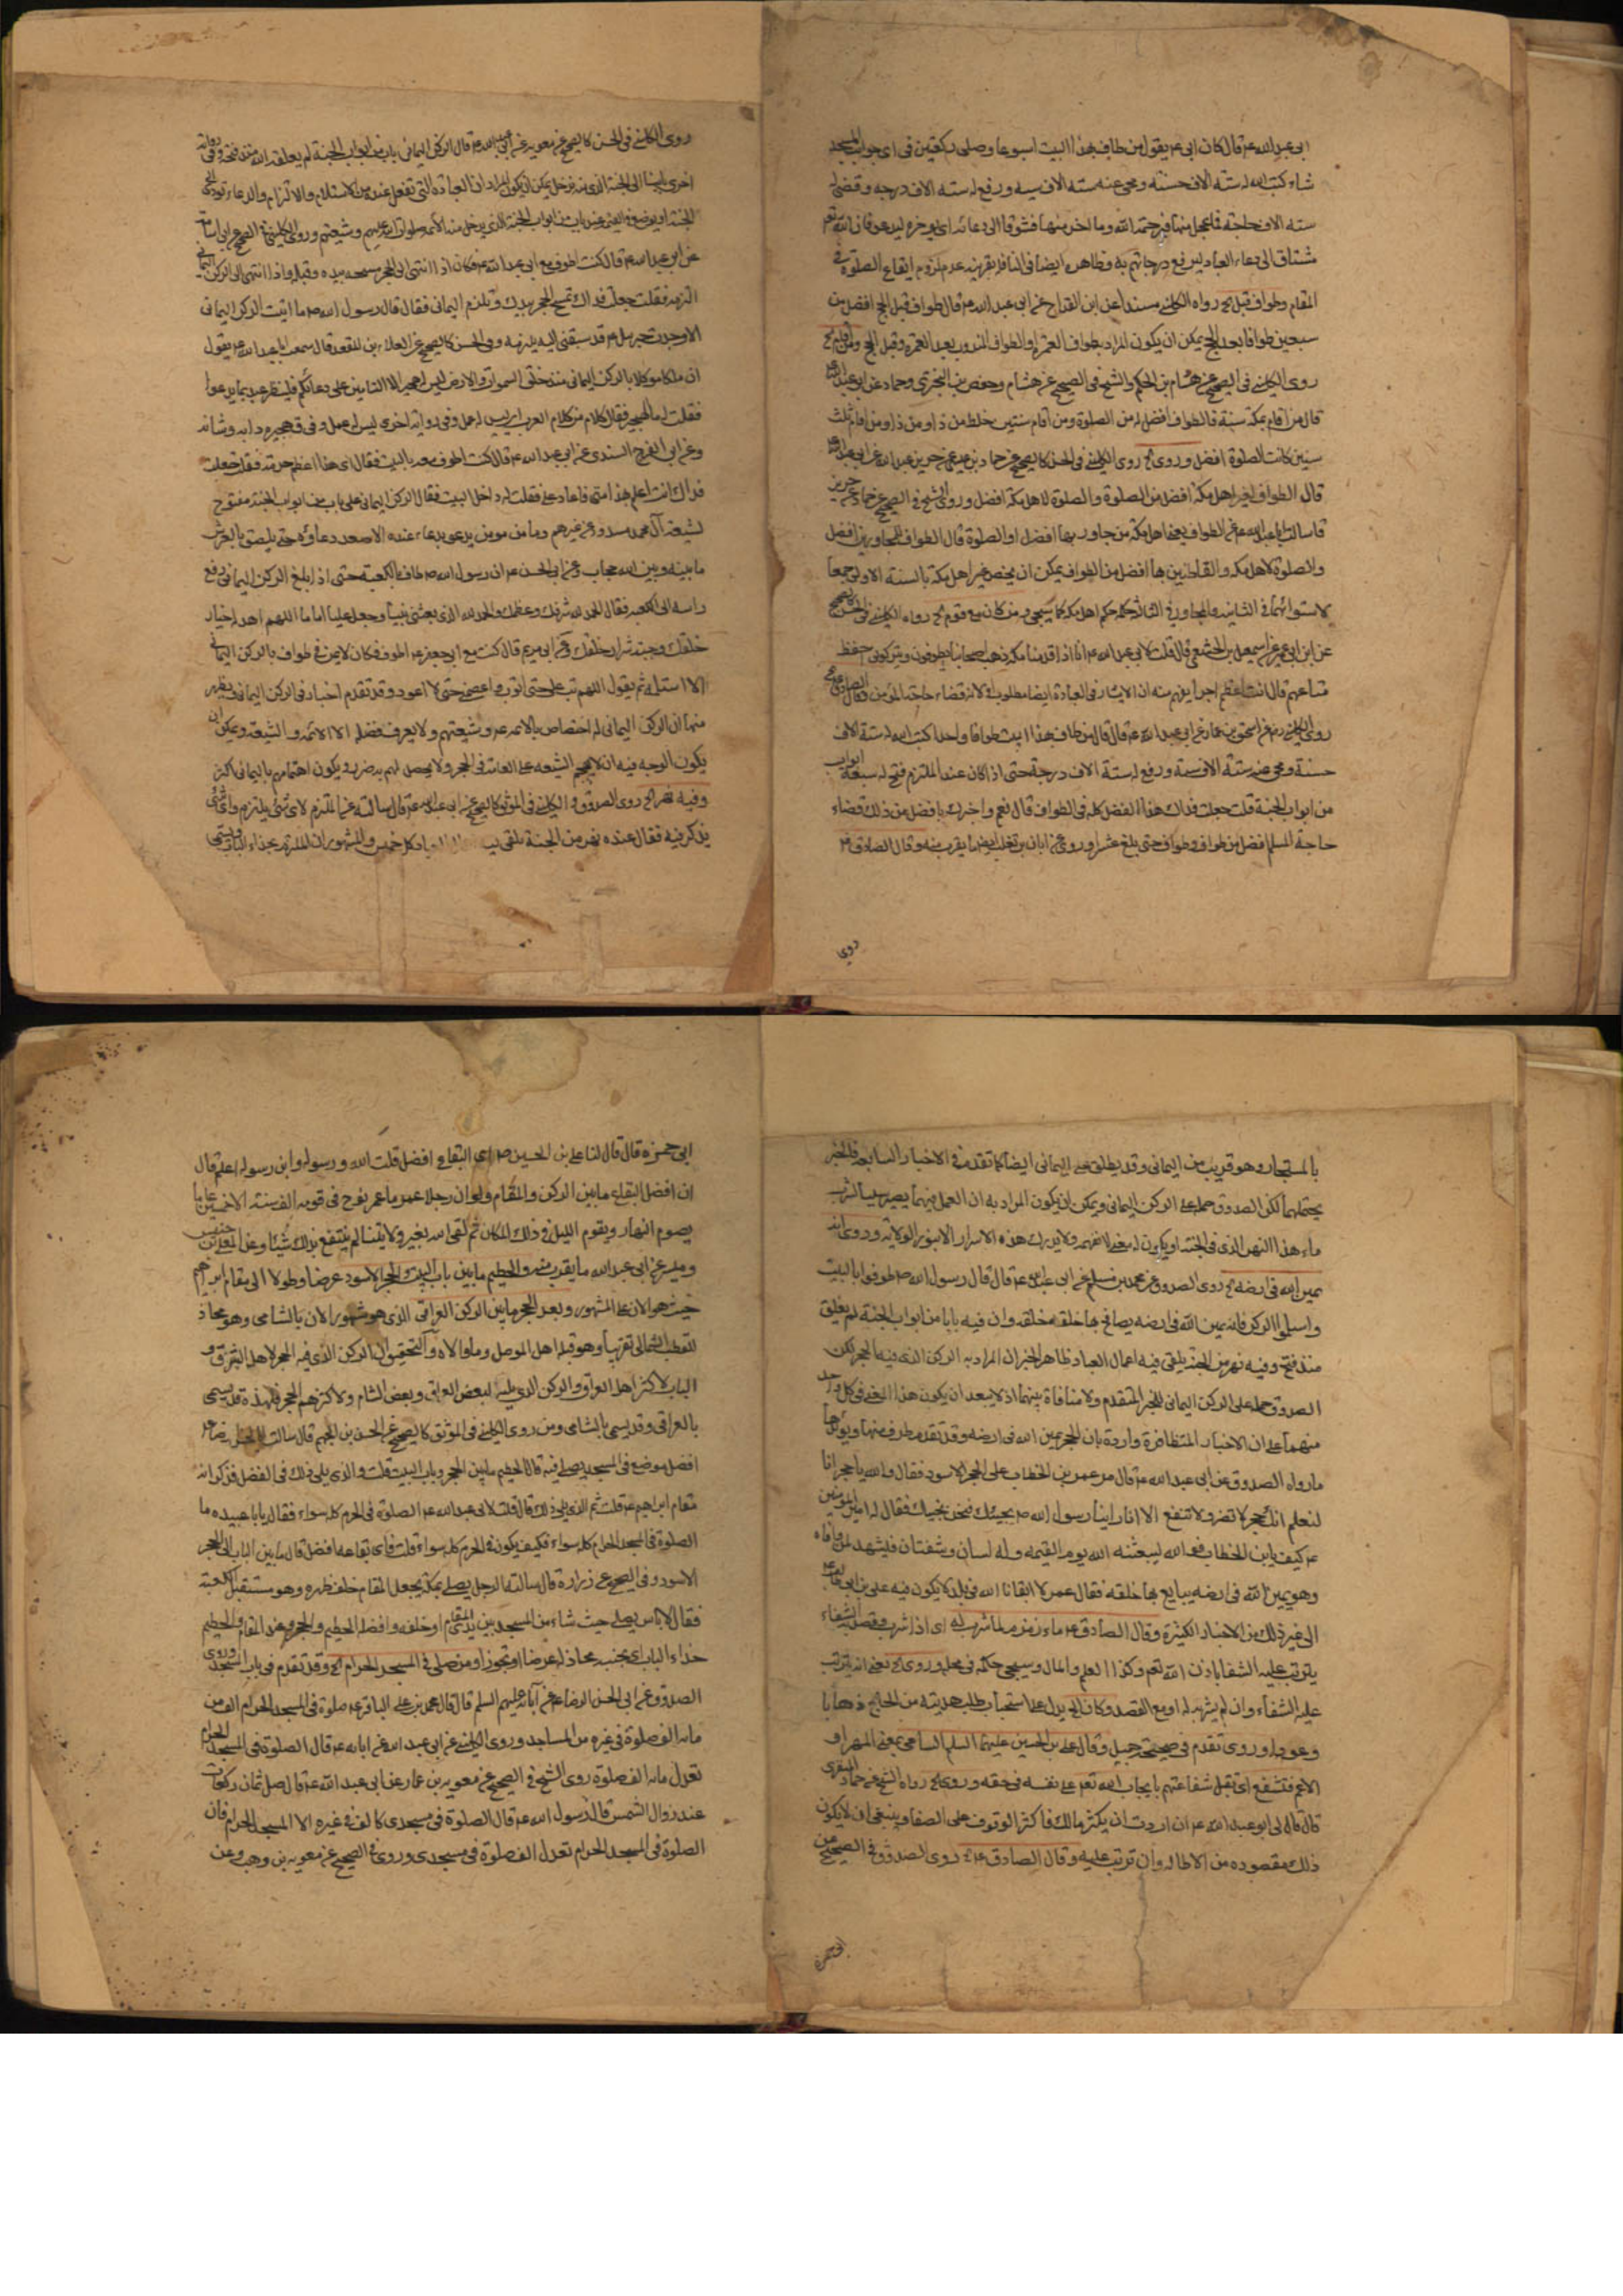 ابى عبد الله ع قال كان ابى ع يقول من طاف بهذا البيت اسبوعا وصلى ركعتين فى اى جوانب المسجد
شاء كتب الله له ستة الاف حسنة ومحى عنه ستة الاف سيئة ورفع له ستة الاف درجة وقضى له
ستة الاف حاجة فما عجل منها فبرحمة الله وما اخر منها فشوقا الى دعائه اى يوخره ليدعو فان الله تعالى
مشتاق الى دعاء العباد ليرفع درجاتهم به وظاهره ايضا فى النافلة بقرينة عدم لزوم ايقاع الصلوة فى
المقام وطواف قبل الخ رواه الكلينى مسندا عن ابن القداح عن ابى عبد الله ع قال طواف قبل الحج افضل من
سبعين طوافا بعد الحج يمكن ان يكون المراد به طواف العمرة او الطواف المندوب بعد العمرة وقبل الحج ومن اقام الخ
روى الكلينى فى الصحيح عن هشام بن الحكم والشيخ فى الصحيح عن هشام وحفص بن البخترى وحماد عن ابى عبد الله ع
قال من اقام بمكة سنة فالطواف افضل له من الصلوة ومن اقام سنتين خلط من ذا ومن ذا ومن اقام ثلث
سنين كانت الصلوة افضل وروى الخ روى الكلينى فى الحسن كالصحيح عن حماد بن عيسى عن حريز عن ابى عبد الله ع
قال الطواف لغير اهل مكة افضل من الصلوة والصلوة لاهل مكة افضل وروى الشيخ فى الصحيح عن حماد عن حريز
قال سالت ابا عبد الله ع عن الطواف يعنى اهل مكة من جاور بها افضل او الصلوة قال الطواف للمجاورين افضل
والصلوة لاهل مكة والقاطنين بها افضل من الطواف يمكن ان يخص غير اهل مكة بالسنة الاولى جمعا
لاستوائهما فى الثانية والمجاور فى الثالثة حكمه حكم اهل مكة كما سيجىء ومن كان مع قوم الخ رواه الكلينى فى الحسن كالصحيح
عن ابن ابى عمير عن اسمعيل بن الخثعمى قال قلت لابى عبد الله ع انا اذا قدمنا مكة ذهب اصحابنا يطوفون ويتركونى احفظ
متاعهم قال انت اعظم اجرا يفهم منه ان الايثار فى العبادة ايضا مطلوب لانه قضاء حاجة المؤمن وقال الصادق ع الخ
روى الكلينى عن اسحق بن عمار عن ابى عبد الله ع قال قال من طاف بهذا البيت طوافا واحدا كتب الله له ستة الاف
حسنة ومحى عنه ستة الاف سيئة ورفع له ستة الاف درجة حتى اذا كان عند الملتزم فتح له سبعة ابواب
من ابواب الجنة قلت جعلت فداك هذا الفضل كله فى الطواف قال نعم واخبرك بافضل من ذلك قضاء
حاجة المسلم افضل من طواف وطواف حتى بلغ عشرا وروى عن ابان بن تغلب ايضا ما يقرب منه وقال الصادق ع
روى
روى الكلينى فى الحسن كالصحيح عن معوية عن ابى عبد الله ع قال الركن اليمانى باب من ابواب الجنة لم يغلقه الله منذ فتحه وفى رواية
اخرى بابنا الى الجنة الذى منه ندخل يمكن ان يكون المراد ان العبادة التى تفعل عنده من الاستلام والالتزام والدعاء تودى الى
الجنة او يوضع يوم القيمة عند باب من ابواب الجنة الذى يدخل منه الائمة صلوات الله عليهم وشيعتهم وروى الكلينى فى الصحيح عن ابى اسامة
عن ابى عبد الله ع قال كنت اطوف مع ابى عبد الله ع فكان اذا انتهى الى الحجر مسحه بيده وقبله واذا انتهى الى الركن اليمانى
التزمه فقلت جعلت فداك تمسح الحجر بيدك وتلتزم اليمانى فقال قال رسول الله ص ما اتيت الركن اليمانى
الا وجدت جبرئيل ع قد سبقنى اليه يلتزمه وفى الحسن كالصحيح عن العلاء بن المقعد قال سمعت ابا عبد الله ع يقول
ان ملكا موكلا بالركن اليمانى منذ خلق السموات والارض ليس له هجير الا التامين على دعائكم فلينظر عبد بما يدعوا
فقلت له ما الهجير فقال كلام من كلام العرب اى ليس له عمل وفى رواية اخرى ليس له عمل وفى ق هجيره دابه وشانه
وعن ابى الفرج السندى عن ابى عبد الله ع قال كنت اطوف معه بالبيت فقال اى هذا اعظم حرمة فقلت جعلت
فداك انت اعلم بهذا منى فاعاد على فقلت له داخل البيت فقال الركن اليمانى على باب من ابواب الجنة مفتوح
لشيعة آل محمد مسدود عن غيرهم وما من مومن يدعو بدعاء عنده الا صعد دعاؤه حتى يلصق بالعرش
ما بينه وبين الله حجاب وعن ابى الحسن ع ان رسول الله ص طاف بالكعبة حتى اذا بلغ الركن اليمانى رفع
راسه الى الكعبة فقال الحمد لله شرفك وعظمك والحمد لله الذى بعثنى نبيا وجعل عليا اماما اللهم اهد له خيار
خلقك وجنبه شرار خلقك وعن ابى مريم قال كنت مع ابى جعفر ع اطوف فكان لا يمر فى طوافه بالركن اليمانى
الا استلمه ثم يقول اللهم تب على حتى اتوب واعصمنى حتى لا اعود وقد تقدم اخبار فى الركن اليمانى ويظهر
منها ان الركن اليمانى له اختصاص بالائمة ع وشيعتهم ولا يعرف فضله الا الائمة والشيعة ويمكن ان
يكون الوجه فيه ان لا يهجم الشيعة على العامة فى الحجر ولا يحصل لهم به ضرر ويكون اهتمامهم باليمانى اكثر
وفيه نهر الخ روى الصدوق والكلينى فى الموثق كالصحيح عن ابى عبد الله ع قال سالته عن الملتزم لاى شىء يلتزم واى شىء
يذكر فيه فقال عنده نهر من الجنة تلقى فيه اعمال العباد كل خميس والمشهور ان الملتزم بحذاء الباب ويسمى
بالمستجار وهو قريب من اليمانى وقد يطلق على اليمانى ايضا كما تقدم فى الاخبار السابقة فالخبر
يحتملهما لكن الصدوق حمله على الركن اليمانى ويمكن ان يكون المراد به ان العمل فيهما يصير سببا لشرب
ماء هذا النهر الذى فى الجنة او يكون له معنى لا نفهمه ولا يدرك هذه الاسرار الا بنور الولاية وروى انه
يمين الله فى ارضه الخ روى الصدوق عن محمد بن مسلم عن ابى عبد الله ع قال قال رسول الله ص طوفوا بالبيت
واستلموا الركن فانه يمين الله فى ارضه يصافح بها خلقه وان فيه بابا من ابواب الجنة لم يغلق
منذ فتح وفيه نهر من الجنة يلقى فيه اعمال العباد ظاهر الخبر ان المراد به الركن الذى فيه الحجر لكن
الصدوق حمله على الركن اليمانى للخبر المتقدم ولا منافاة بينهما اذ لا يبعد ان يكون هذا المعنى فى كل واحد
منهما على ان الاخبار المتظافرة واردة بان الحجر يمين الله فى ارضه وقد تقدم طرف منها ويويدها
ما رواه الصدوق عن ابى عبد الله ع قال مر عمر بن الخطاب على الحجر الاسود فقال والله يا حجر انا
لنعلم انك حجر لا تضر ولا تنفع الا انا راينا رسول الله ص يحبك فنحن نحبك فقال له امير المومنين
ع كيف يابن الخطاب فو الله ليبعثنه الله يوم القيمة وله لسان وشفتان فيشهد لمن وافاه
وهو يمين الله فى ارضه يبايع بها خلقه فقال عمر لا ابقانا الله فى بلد لا يكون فيه على بن ابى طالب
الى غير ذلك من الاخبار الكثيرة وقال الصادق ع ماء زمزم لما شرب له اى اذا شرب بقصد الشفاء
يترتب عليه الشفا باذن الله تعالى وكذا العلم والمال وسيجىء حكمه فى محله وروى الخ يعنى انه يترتب
عليه الشفاء وان لم يشربه له او مع القصد وكان الخ يدل على استحباب طلب هديته من الحاج ذهابا
وعودا وروى تقدم فى صحيحة جميل وقال على بن الحسين عليهما السلم الساعى بمعنى المهراو
الاعم فتشفع اى تقبل شفاعتهم بايجاب الله تعالى على نفسه فى حقه وروى الخ رواه الشيخ عن حماد المنقرى
قال قال لى ابو عبد الله ع ان اردت ان يكثر مالك فاكثر الوقوف على الصفا وينبغى ان لا يكون
ذلك مقصوده من الاطالة وان ترتب عليه وقال الصادق ع الخ روى الصدوق فى الصحيح عن
ابى حمزة
ابى حمزة قال قال لنا على بن الحسين ص اى البقاع افضل قلت الله ورسوله وابن رسوله اعلم قال
ان افضل البقاع ما بين الركن والمقام ولو ان رجلا عمر ما عمر نوح فى قومه الف سنة الا خمسين عاما
يصوم النهار ويقوم الليل فى ذلك المكان ثم لقى الله بغير ولايتنا لم ينتفع بذلك شيئا وعن المعلى بن خنيس
وميسر عن ابى عبد الله ما يقرب منه والحطيم ما بين باب البيت والحجر الاسود عرضا وطولا الى مقام ابراهيم
حيث هو الان على المشهور وبعد الحجر ما بين الركن العراقى الذى هو مشهور الان بالشامى وهو محاذ
للقطب الشمالى تقريبا وهو قبلة اهل الموصل وما والاه والتحقيق ان الركن الذى فيه الحجر لاهل الشرق و
الباب لاكثر اهل العراق والركن الذى يليه لبعض العراق وبعض الشام ولاكثرهم الحجر فلهذا قد يسمى
بالعراقى وقد يسمى بالشامى ومن روى الكلينى فى الموثق كالصحيح عن الحسن بن الجهم قال سالت ابا الحسن الرضا ع
افضل موضع فى المسجد يصلى فيه قال الحطيم ما بين الحجر وباب البيت قلت والذى يلى ذلك فى الفضل فذكر انه
مقام ابراهيم ع قلت ثم الذى يلى ذلك قال قلت لابى عبد الله ع الصلوة فى الحرم كله سواء فقال يا ابا عبيدة ما
الصلوة فى المسجد الحرام كله سواء فكيف يكون فى الحرم كله سواء قلت فاى بقاعه افضل قال ما بين الباب الى الحجر
الاسود وفى الصحيح عن زرارة قال سالته الرجل يصلى بمكة يجعل المقام خلف ظهره وهو مستقبل الكعبة
فقال لا باس يصلى حيث شاء من المسجد بين يدى المقام او خلفه وافضله الحطيم والحجر وعند المقام والحطيم
حذاء الباب اى بجنبه محاذ له عرضا او تجوزا ومن صلى فى المسجد الحرام الخ وقد تقدم فى باب المسجد وروى
الصدوق عن ابى الحسن الرضا ع عن آبائه عليهم السلم قال قال محمد بن على الباقر ع صلوة فى المسجد الحرام افضل من
مائة الف صلوة فى غيره من المساجد وروى الكلينى عن ابى عبد الله عن ابائه ع قال الصلوة فى المسجد الحرام
تعدل مائة الف صلوة روى الشيخ فى الصحيح عن معوية بن عمار عن ابى عبد الله ع قال صل ثمان ركعات
عند زوال الشمس قال رسول الله ع قال الصلوة فى مسجدى كالف فى غيره الا المسجد الحرام فان
الصلوة فى المسجد الحرام تعدل الف صلوة فى مسجدى وروى فى الصحيح عن معوية بن وهب وعن